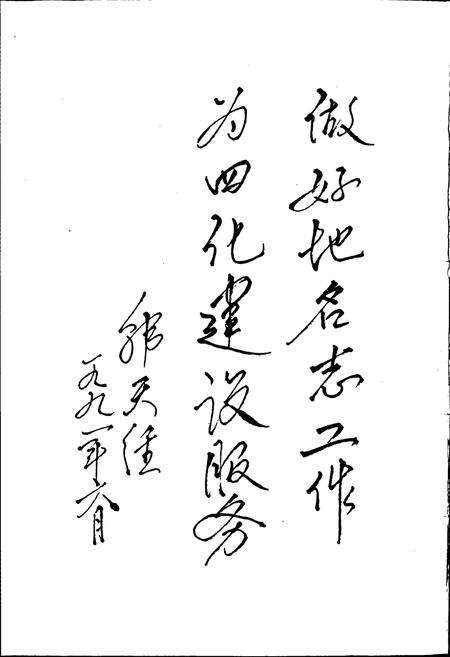 做好地名志工作
为四化建设服务
天
一九九一年六月